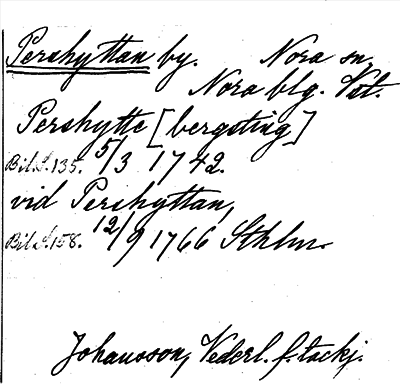 Pershyttan by. Nora sn.
Nora blg. Vst.
Pershytte [bergsting]
Bil. S. 135. 5/3 1742.
vid Pershyttan,
Bil. S. 158. 12/9 1766 Sthlm.
Johansson, Nederl. f. tackj.